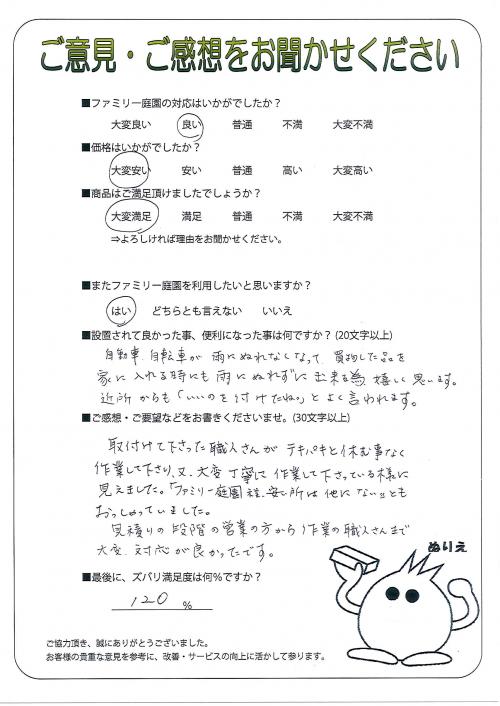 ご意見・ご感想をお聞かせください
■ファミリー庭園の対応はいかがでしたか？
大変良い 良い 普通 不満 大変不満
■価格はいかがでしたか？
大変安い 安い 普通 高い 大変高い
■商品はご満足頂けましたでしょうか？
大変満足 満足 普通 不満 大変不満
⇒よろしければ理由をお聞かせください。
■またファミリー庭園を利用したいと思いますか？
はい どちらとも言えない いいえ
■設置されて良かった事、便利になった事は何ですか？(20文字以上)
自動車、自転車が 雨にぬれなくなって 買物した品を
家に入れる時にも雨にぬれずに出来る為 嬉しく思います。
近所からも「いいのを付けたね。」とよく言われます。
■ご感想・ご要望などをお書きくださいませ。(30文字以上)
取付けて下さった職人さんが テキパキと休む事なく
作業して下さり、又、大変丁寧に作業して下さっている様に
見えました。「ファミリー庭園程、安い所は他にない」とも
おっしゃっていました。
見積りの段階の営業の方から作業の職人さんまで
大変 対応が良かったです。
ぬりえ
■最後に、ズバリ満足度は何％ですか？
120 ％
ご協力頂き、誠にありがとうございました。
お客様の貴重な意見を参考に、改善・サービスの向上に活かして参ります。